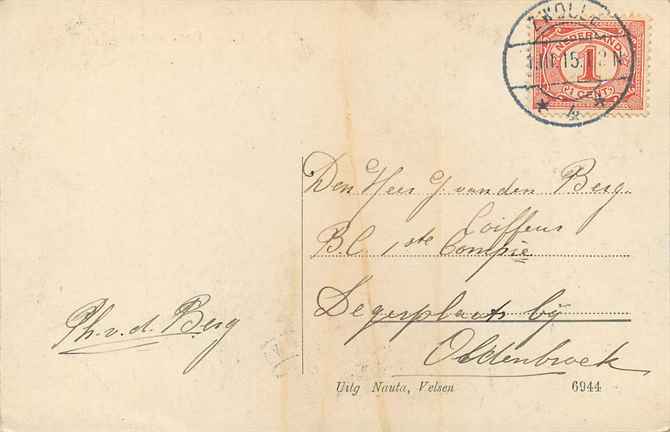 ZWOLLE
NEDERLAND
III.15. N
1
1 CENT
4
Den Heer J. van den Berg.
Coiffeus
B.C. 1ste Compie
Legerplaats bij
Oldenbroek
Ph. v. d. Berg
Uitg Nauta, Velsen 6944